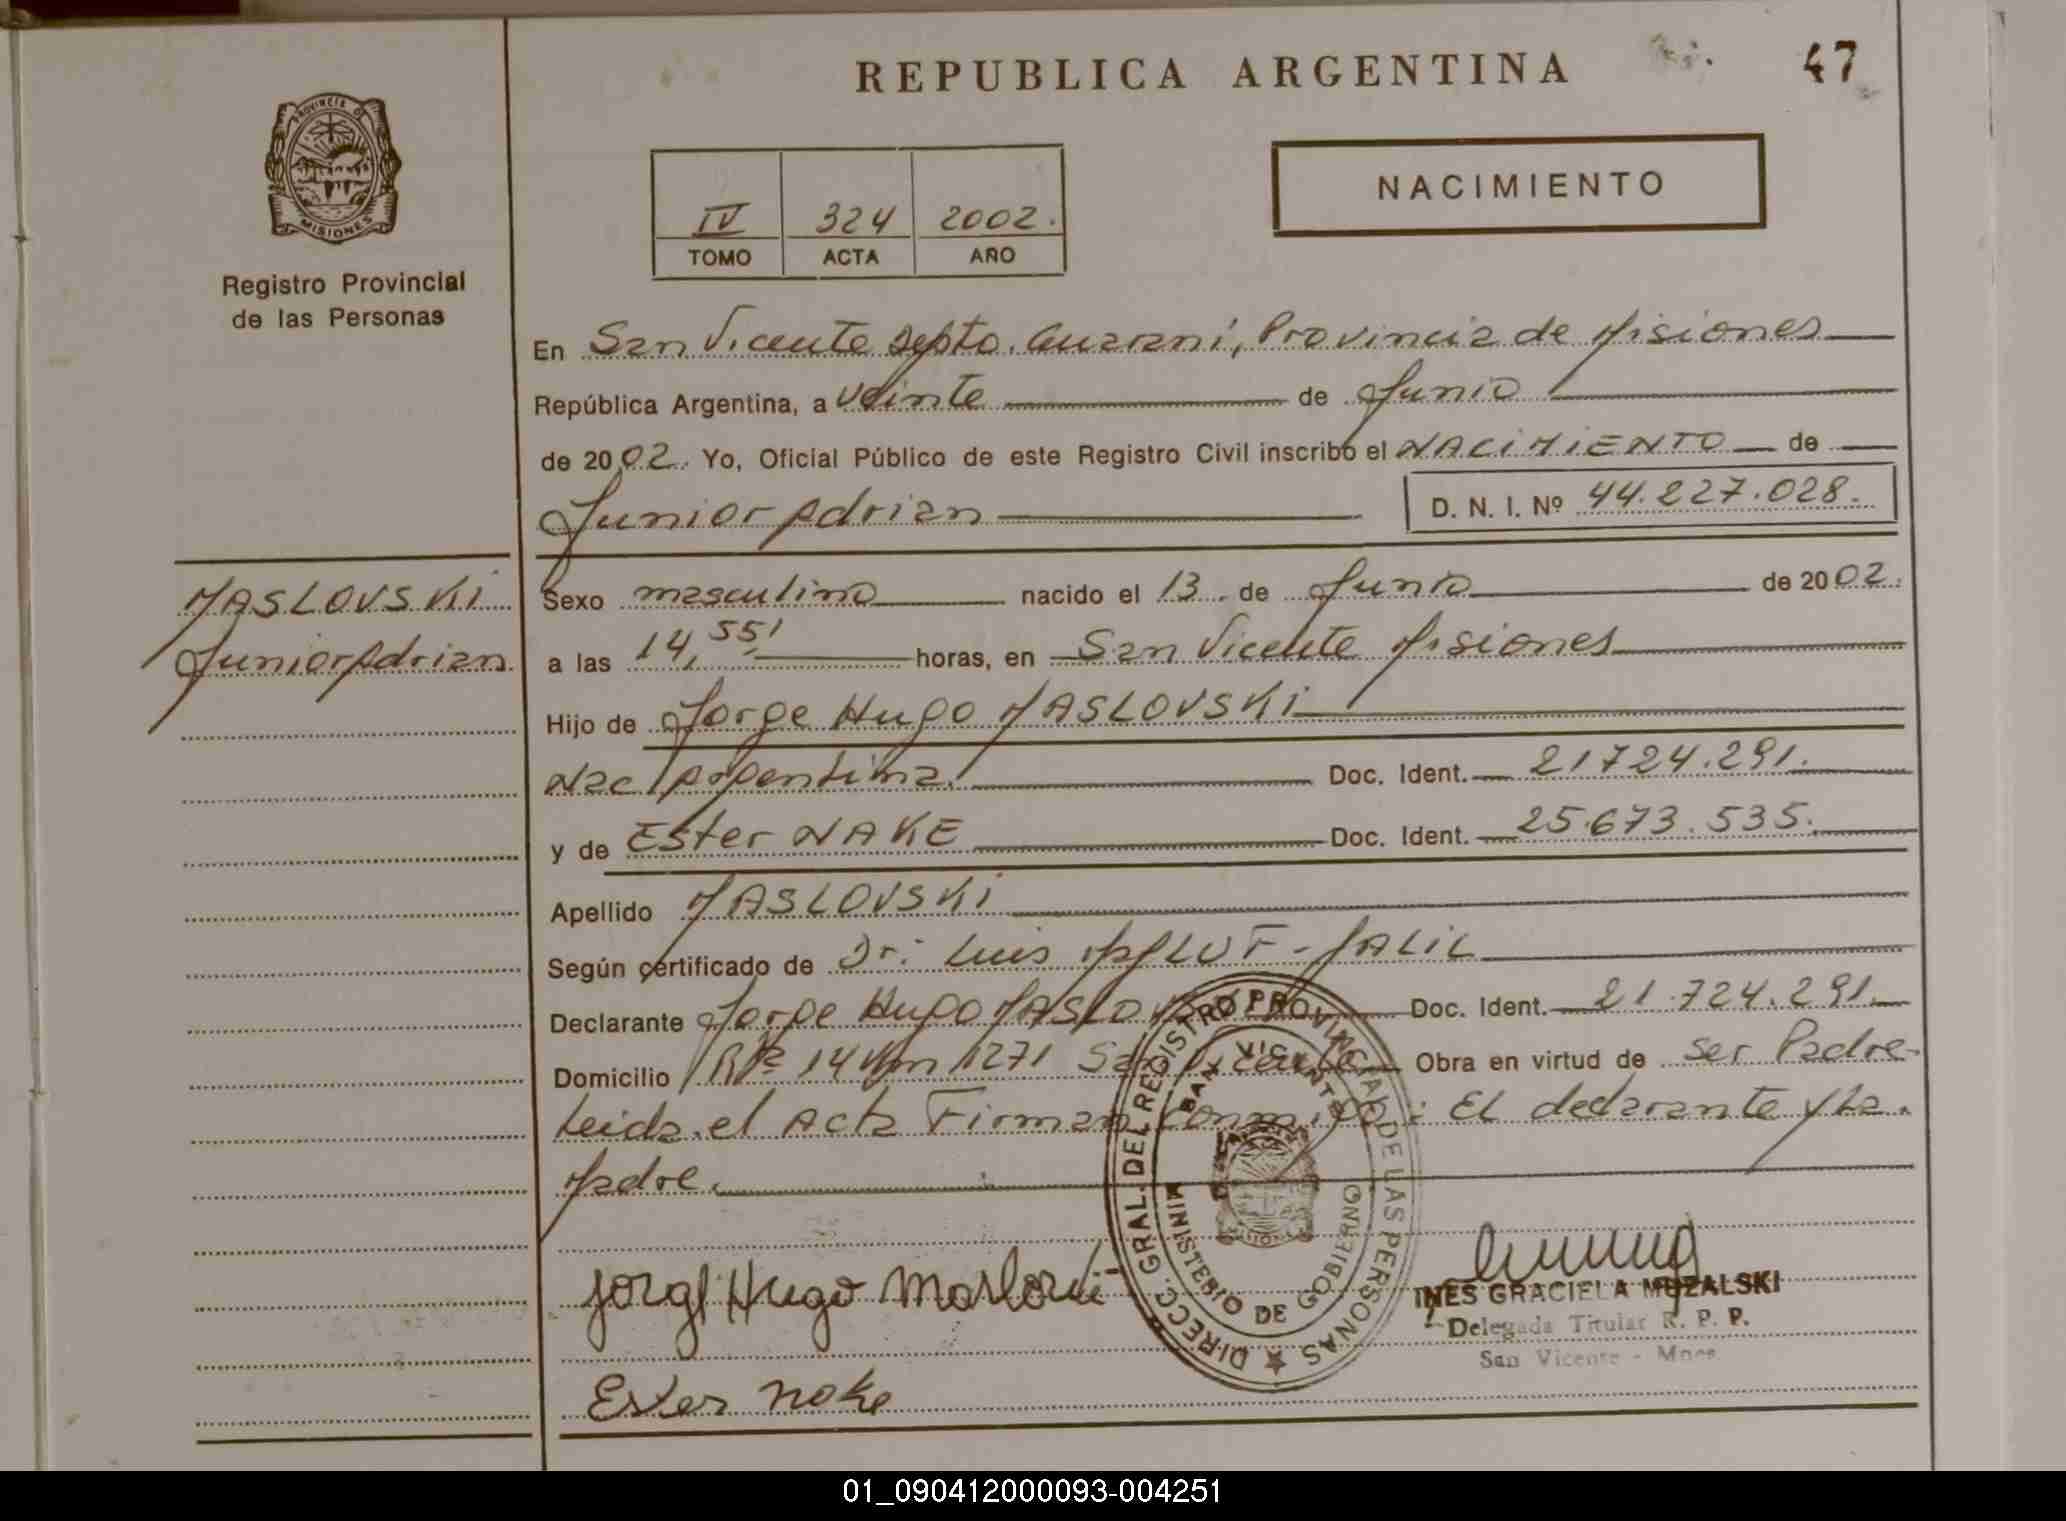 REPUBLICA ARGENTINA
47
PROVINCIA DE
MISIONES
Registro Provincial
de las Personas
IV 324 2002.
TOMO ACTA AÑO
NACIMIENTO
En San Vicente Depto. Guaraní, Provincia de Misiones
República Argentina, a veinte de Junio
de 2002. Yo, Oficial Público de este Registro Civil inscribo el NACIMIENTO de
Junior Adrian D. N. I. Nº 44.227.028.
MASLOVSKi
Junior Adrian
Sexo masculino nacido el 13 de Junio de 2002.
a las 14,55' horas, en San Vicente Misiones
Hijo de Jorge Hugo MASLOVSKi
Nac Argentina. Doc. Ident. 21724.291.
y de Ester NAKE Doc. Ident. 25.673.535.
Apellido MASLOVSKi
Según certificado de Dr. Luis JALiL
Declarante Jorge Hugo MASLOVSKi Doc. Ident. 21.724.291.
Domicilio 14 Km 1271 San Vicente Obra en virtud de ser Padre
Leida el Acta Firman conmigo: El declarante y La
Madre.
DIRECC. GRAL. DEL REGISTRO PROVINCIAL DE LAS PERSONAS
SAN VICENTE
MINISTERIO DE GOBIERNO
Jorge Hugo Maslovski
INES GRACIELA MUZALSKI
Delegada Titular R. P. P.
San Vicente - Mnes.
Ester Nake
01_090412000093-004251